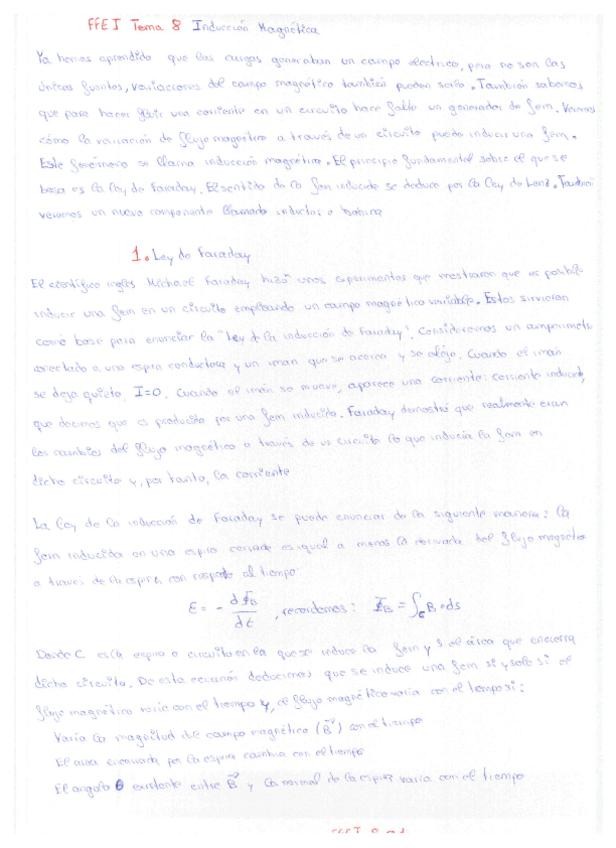 FFEI Tema 8 Inducción Magnética
Ya hemos aprendido que las cargas generaban un campo eléctrico, pero no son las
únicas fuentes, variaciones del campo magnético también pueden serlo. También sabemos
que para hacer fluir una corriente en un circuito hace falta un generador de fem. Veremos
cómo la variación de flujo magnético a través de un circuito puede inducir una fem.
Este fenómeno se llama inducción magnética. El principio fundamental sobre el que se
basa es la Ley de Faraday. El sentido de la fem inducida se deduce por la Ley de Lenz. También
veremos un nuevo componente llamado inductor o bobina
1. Ley de Faraday
El científico inglés Michael Faraday hizo unos experimentos que mostraron que es posible
inducir una fem en un circuito empleando un campo magnético variable. Estos sirvieron
como base para enunciar la "Ley de la inducción de Faraday". Consideremos un amperímetro
conectado a una espira conductora y un imán que se acerca y se aleja. Cuando el imán
se deja quieto, I=0. Cuando el imán se mueve, aparece una corriente: corriente inducida,
que decimos que es producida por una fem inducida. Faraday demostró que realmente eran
los cambios del flujo magnético a través de un circuito lo que inducía la fem en
dicho circuito y, por tanto, la corriente
La Ley de la inducción de Faraday se puede enunciar de la siguiente manera: la
fem inducida en una espira cerrada es igual a menos la derivada del flujo magnético
a través de la espira con respecto al tiempo
ε = - dΦB/dt , recordemos: ΦB = ∫c B · ds
Donde C es la espira o circuito en la que se induce la fem y S el área que encierra
dicho circuito. De esta ecuación deducimos que se induce una fem si y solo si el
flujo magnético varía con el tiempo y, el flujo magnético varía con el tiempo si:
Varía la magnitud del campo magnético (B) con el tiempo
El área encerrada por la espira cambia con el tiempo
El ángulo θ existente entre B y la normal de la espira varía con el tiempo